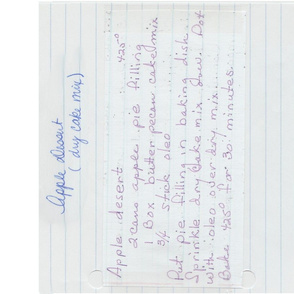 Apple Dessert
(dry cake mix)
Apple desert 425°
2 cans apple pie filling
1 Box butter pecan cake mix
3/4 stick oleo
Put pie filling in baking dish
Sprinkle dry cake mix over. Dot
with oleo over dry mix.
Bake 425° for 30 minutes.